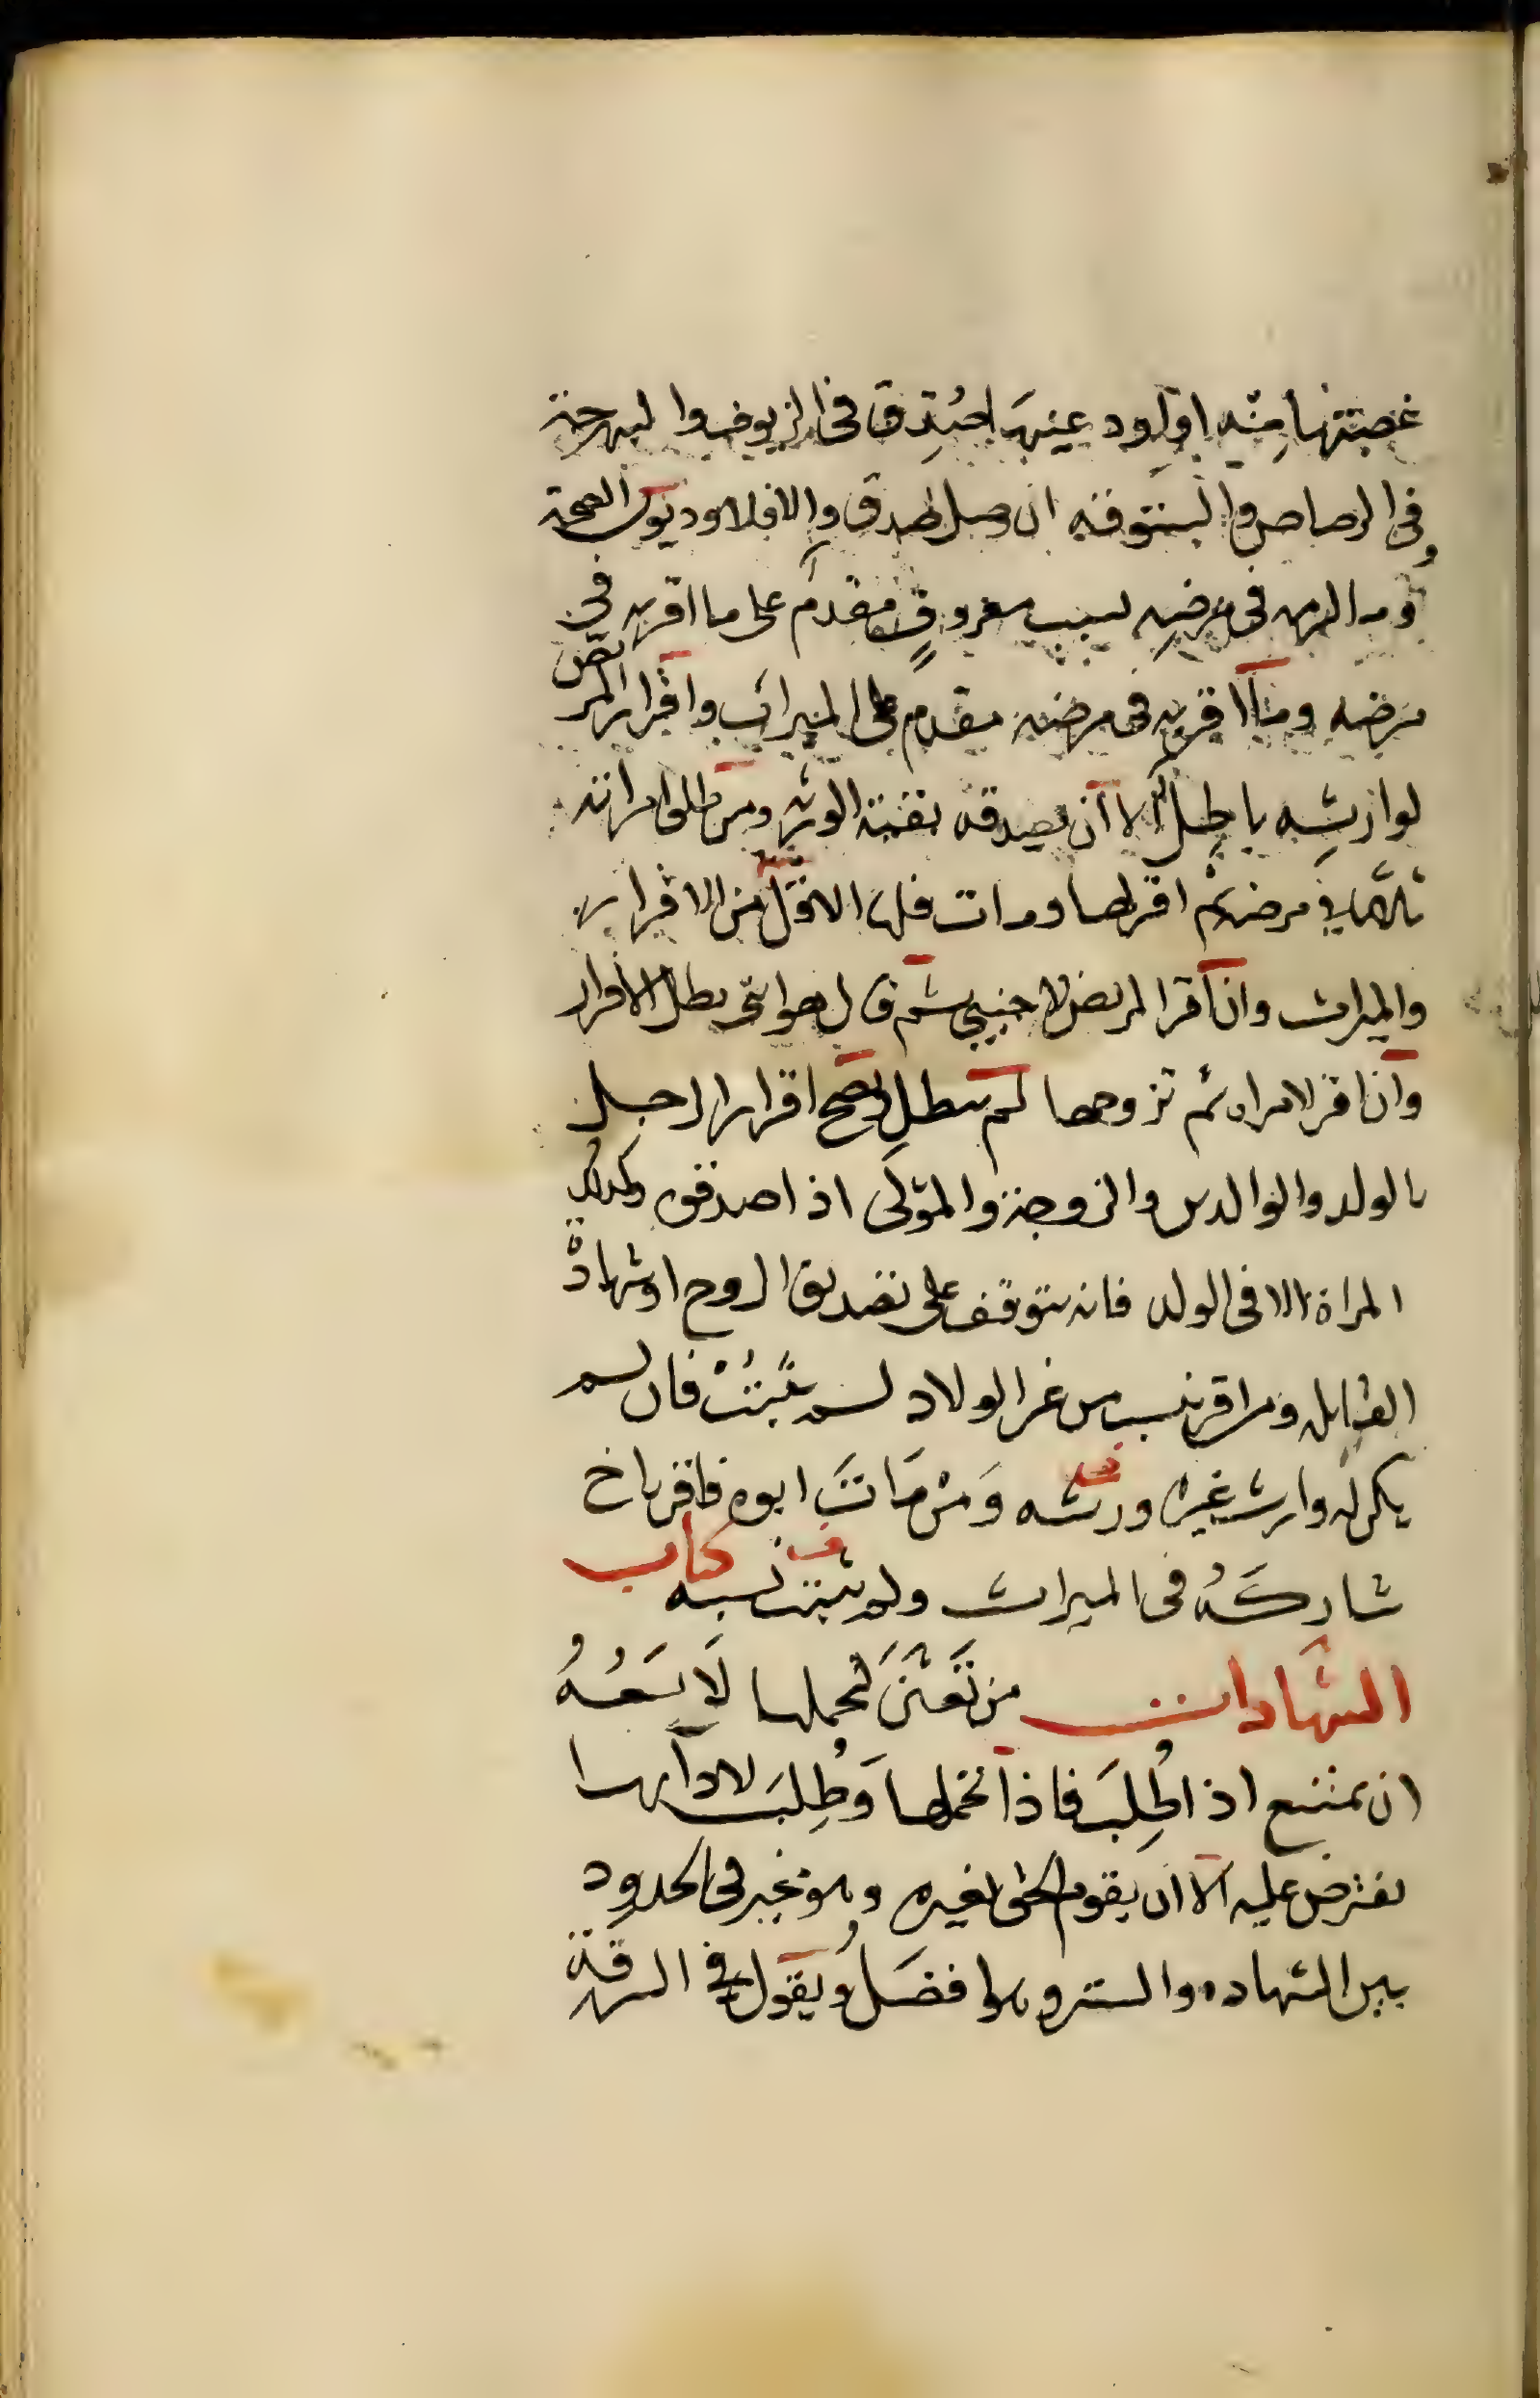 غصبتها منه او اودعنيها صدق في الزيوف والنبهرجة
وفي الرصاص والستوقة ان وصل صدق والا فلا وديون الصحة
وما لزمه في مرضه بسبب معروف مقدم على ما اقر به في
مرضه وما اقر به في مرضه مقدم على الميراث واقرار المريض
لوارثه باطل الا ان يصدقه بقية الورثة ومن طلق امراته
ثلاثا في مرضه ثم اقر لها ومات فلها الاقل من الاقرار
والميراث وان اقر المريض لاجنبي ثم قال هو ابني بطل الاقرار
وان اقر لامراة ثم تزوجها لم يبطل ويصح اقرار الرجل
بالولد والوالدين والزوجة والمولى اذا صدقوه وكذلك
المراة الا في الولد فانه يتوقف على تصديق الزوج او شهادة
القابلة ومن اقر بنسب من غير الولاد لم يثبت فان لم
يكن له وارث غيره ورثه ومن مات ابوه فاقر باخ
شاركه في الميراث ولم يثبت نسبه كتاب
الشهادات من تعين لتحملها لا يسعه
ان يمتنع اذا طلب فاذا تحملها وطلب لادآيها
يفترض عليه الا ان يقوم الحق بغيره وهو مخير في الحدود
بين الشهادة والستر وهو افضل ويقول في السرقة